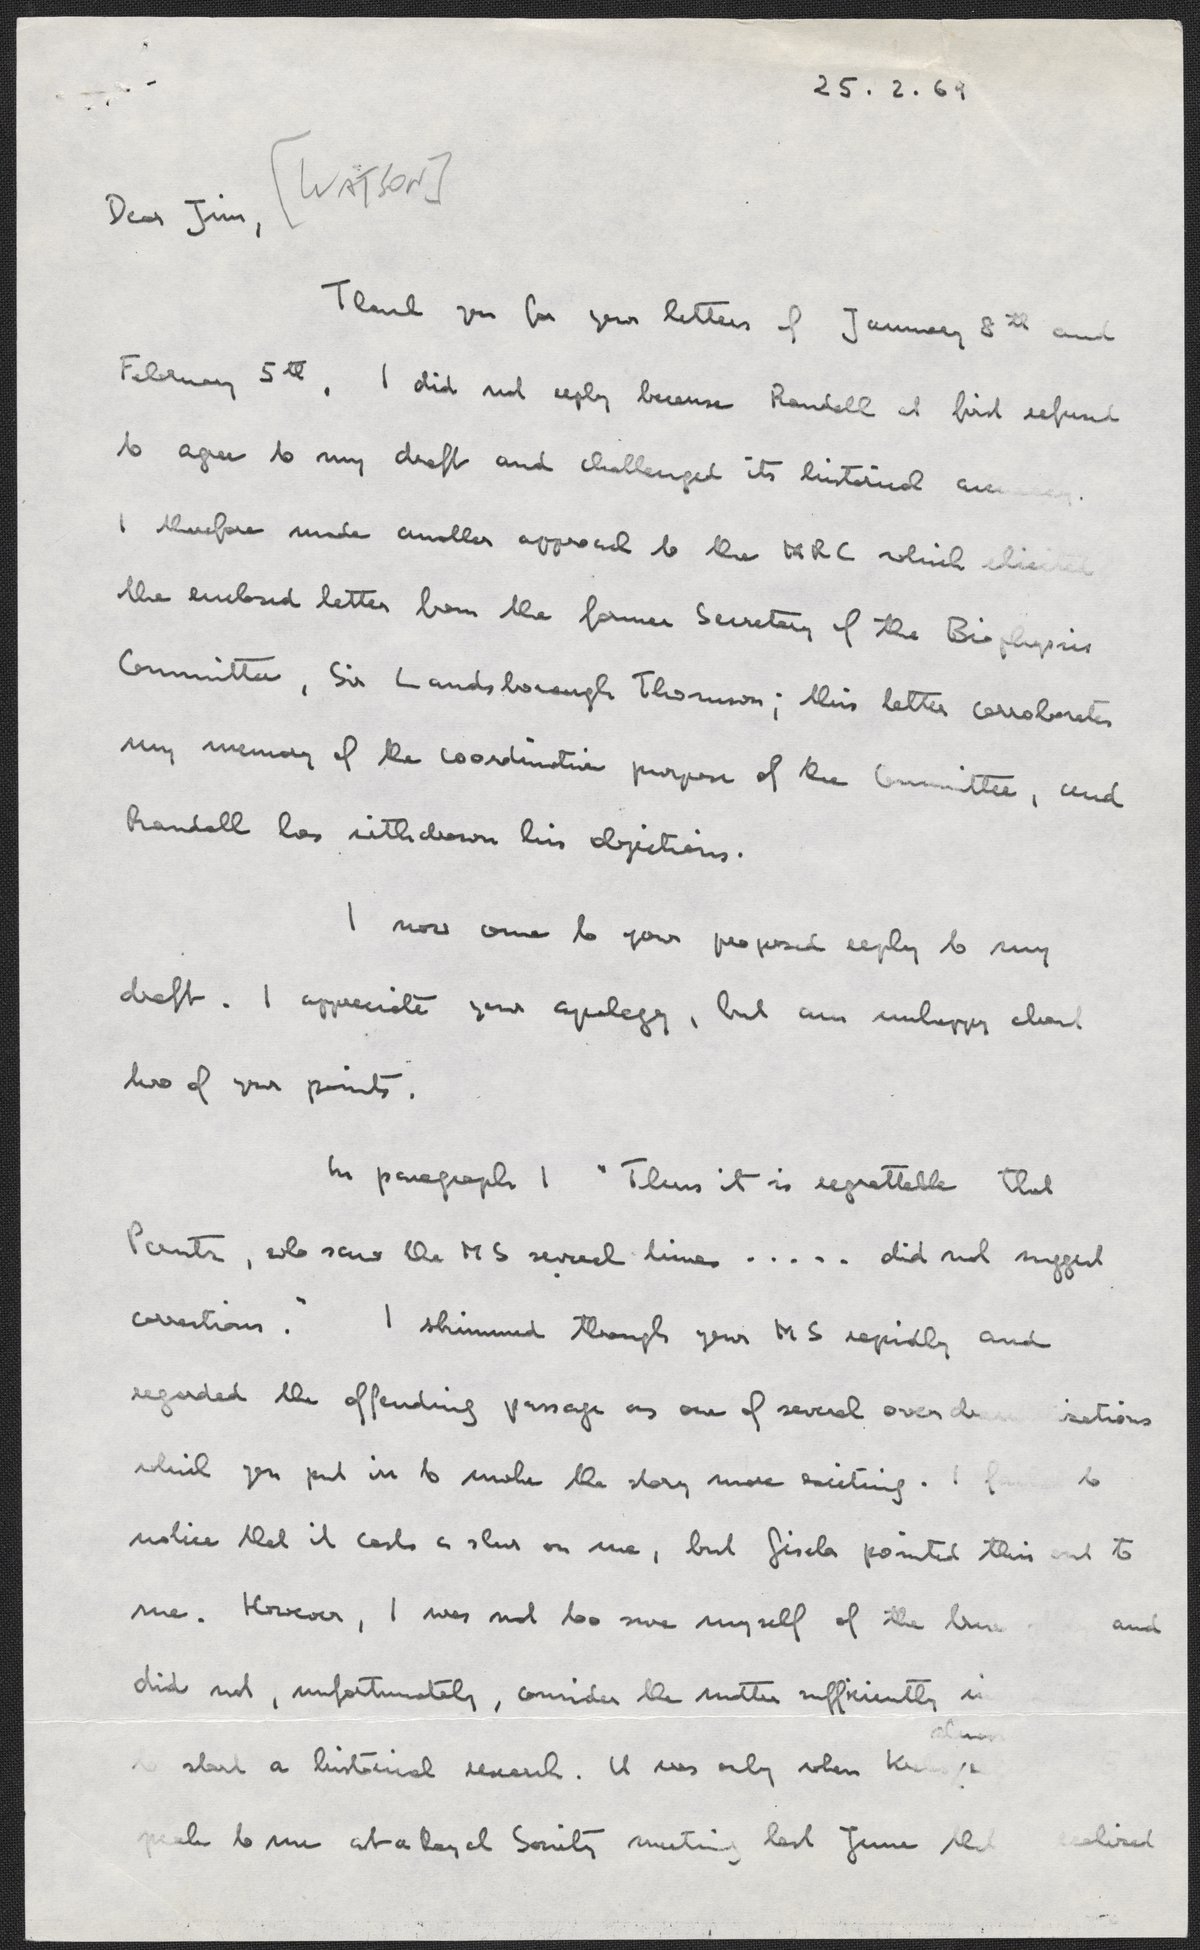 25.2.69
[WATSON]
Dear Jim,
Thank you for your letters of January 8th and
February 5th. I did not reply because Randall at first refused
to agree to my draft and challenged its historical accuracy.
I therefore made another approach to the MRC which elicited
the enclosed letter from the former Secretary of the Biophysics
Committee, Sir Landsborough Thomson; this letter corroborates
my memory of the coordinative purpose of the Committee, and
Randall has withdrawn his objections.
I now come to your proposed reply to my
draft. I appreciate your apology, but am unhappy about
two of your points.
In paragraph 1 "Thus it is regrettable that
Perutz, who saw the MS several times ..... did not suggest
corrections." I skimmed through your MS rapidly and
regarded the offending passage as one of several overdramatisations
which you put in to make the story more exciting. I failed to
notice that it casts a slur on me, but Gisela pointed this out to
me. However, I was not too sure myself of the true and
did not, unfortunately, consider the matter sufficiently
to start a historical research. It was only when
to me at a Royal Society meeting last June that realised